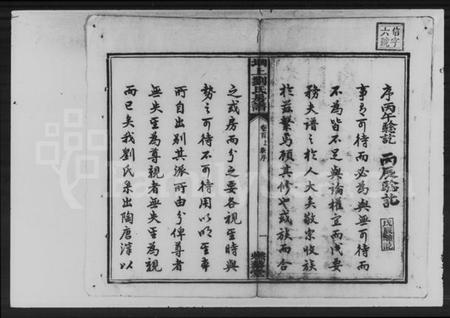 信字
六號
序丙午驗記 丙辰驗記
事有可待而必為與無可待而
不為皆不足與論權宜而成要
務夫譜之於人大矣敬宗收族
於茲繫焉顧其修也或族而合
劉氏
卷首上 新序
一
之或房而分之要各視乎時與
勢之可待不可待用以明乎本
所自出別其派所由分俾尊者
無失乎為尊親者無失乎為親
而已矣我劉氏系出陶唐漢以